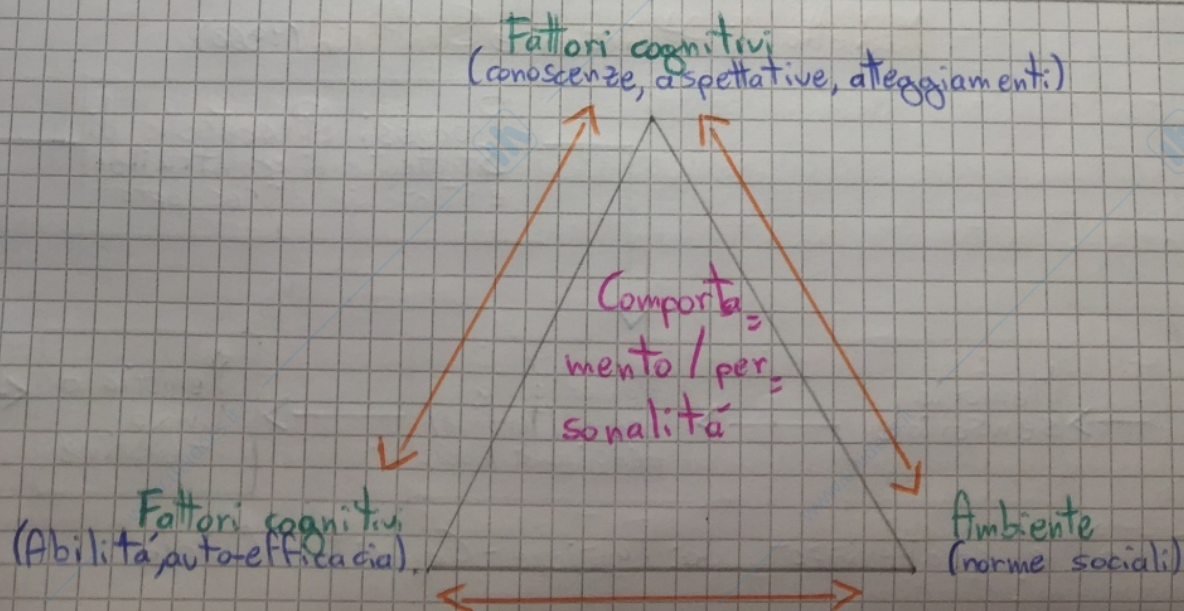 Fattori cognitivi
(conoscenze, aspettative, atteggiamenti)
Comporta=
mento / per=
sonalitá
Fattori cognitivi
(Abilitá, auto-efficacia)
Ambiente
(norme sociali)